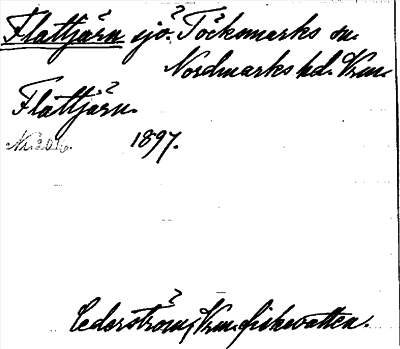 Flattjärn sjö. Töcksmarks sn.
Nordmarks hd. Vrm.
Flattjärn.
1897.
Cederström, Vrm. fiskevatten.